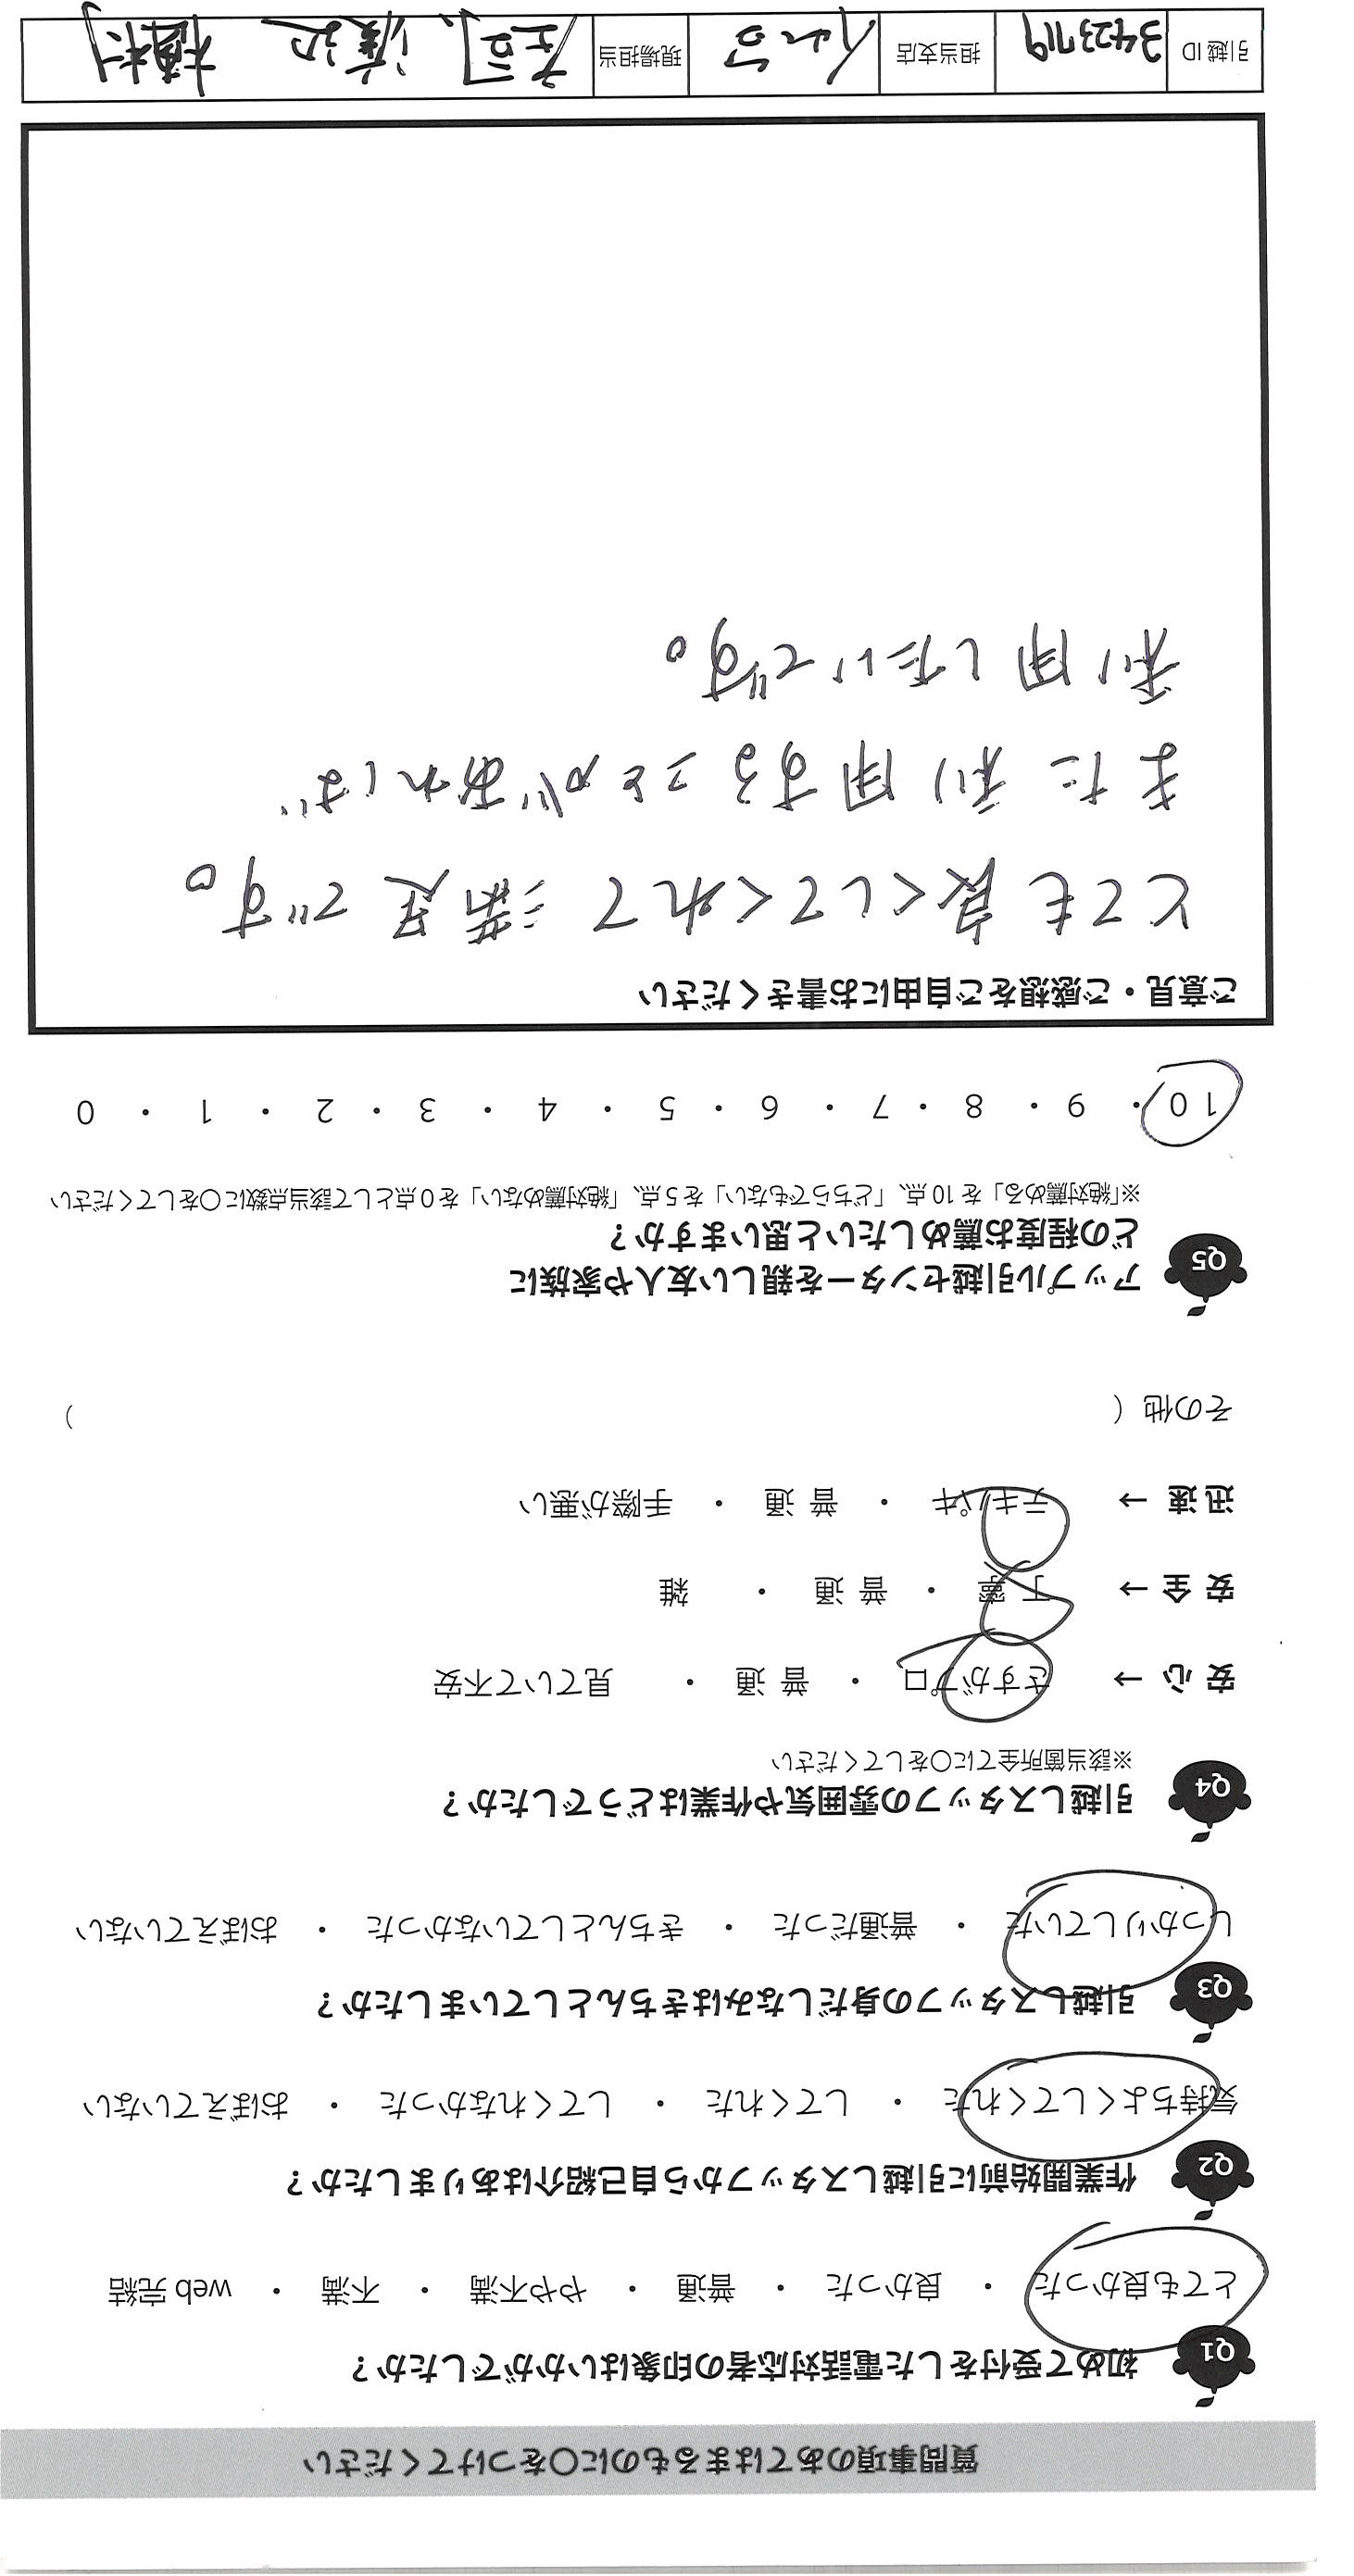 質問事項のあてはまるものに○をつけてください
Q1 初めて受付をした電話対応者の印象はいかがでしたか？
とても良かった ・ 良かった ・ 普通 ・ やや不満 ・ 不満 ・ web 完結
Q2 作業開始前に引越しスタッフから自己紹介はありましたか？
気持ちよくしてくれた ・ してくれた ・ してくれなかった ・ おぼえていない
Q3 引越しスタッフの身だしなみはきちんとしていましたか？
しっかりしていた ・ 普通だった ・ きちんとしていなかった ・ おぼえていない
Q4 引越しスタッフの雰囲気や作業はどうでしたか？
※該当箇所全てに○をしてください
安 心 → さすがプロ ・ 普 通 ・ 見ていて不安
安 全 → 丁 寧 ・ 普 通 ・ 雑
迅 速 → テキパキ ・ 普 通 ・ 手際が悪い
その他（ ）
Q5 アップル引越センターを親しい友人や家族に
どの程度お薦めしたいと思いますか？
※「絶対薦める」を 10 点、「どちらでもない」を 5 点、「絶対薦めない」を 0 点として該当点数に○をしてください
10 ・ 9 ・ 8 ・ 7 ・ 6 ・ 5 ・ 4 ・ 3 ・ 2 ・ 1 ・ 0
ご意見・ご感想をご自由にお書きください
とても良くしてくれて満足です。
また利用することがあれば
利用したいです。
引越 ID 3423719 担当支店 仙台 現場担当 庄司、渡辺 植村